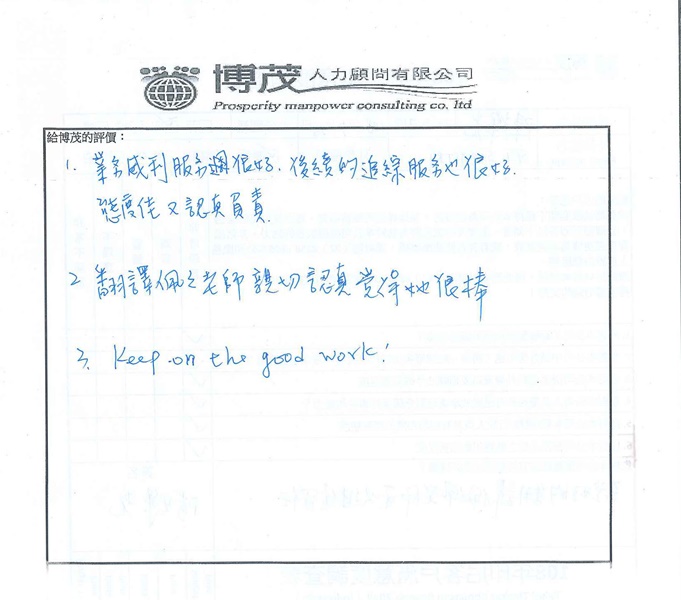 博茂人力顧問有限公司
Prosperity manpower consulting co. ltd
給博茂的評價：
1. 業務威利服務週很好. 後續的追綜服務也很好.
態度佳又認真負責.
2 翻譯佩之老師親切認真覺得她很棒
3. Keep on the good work!